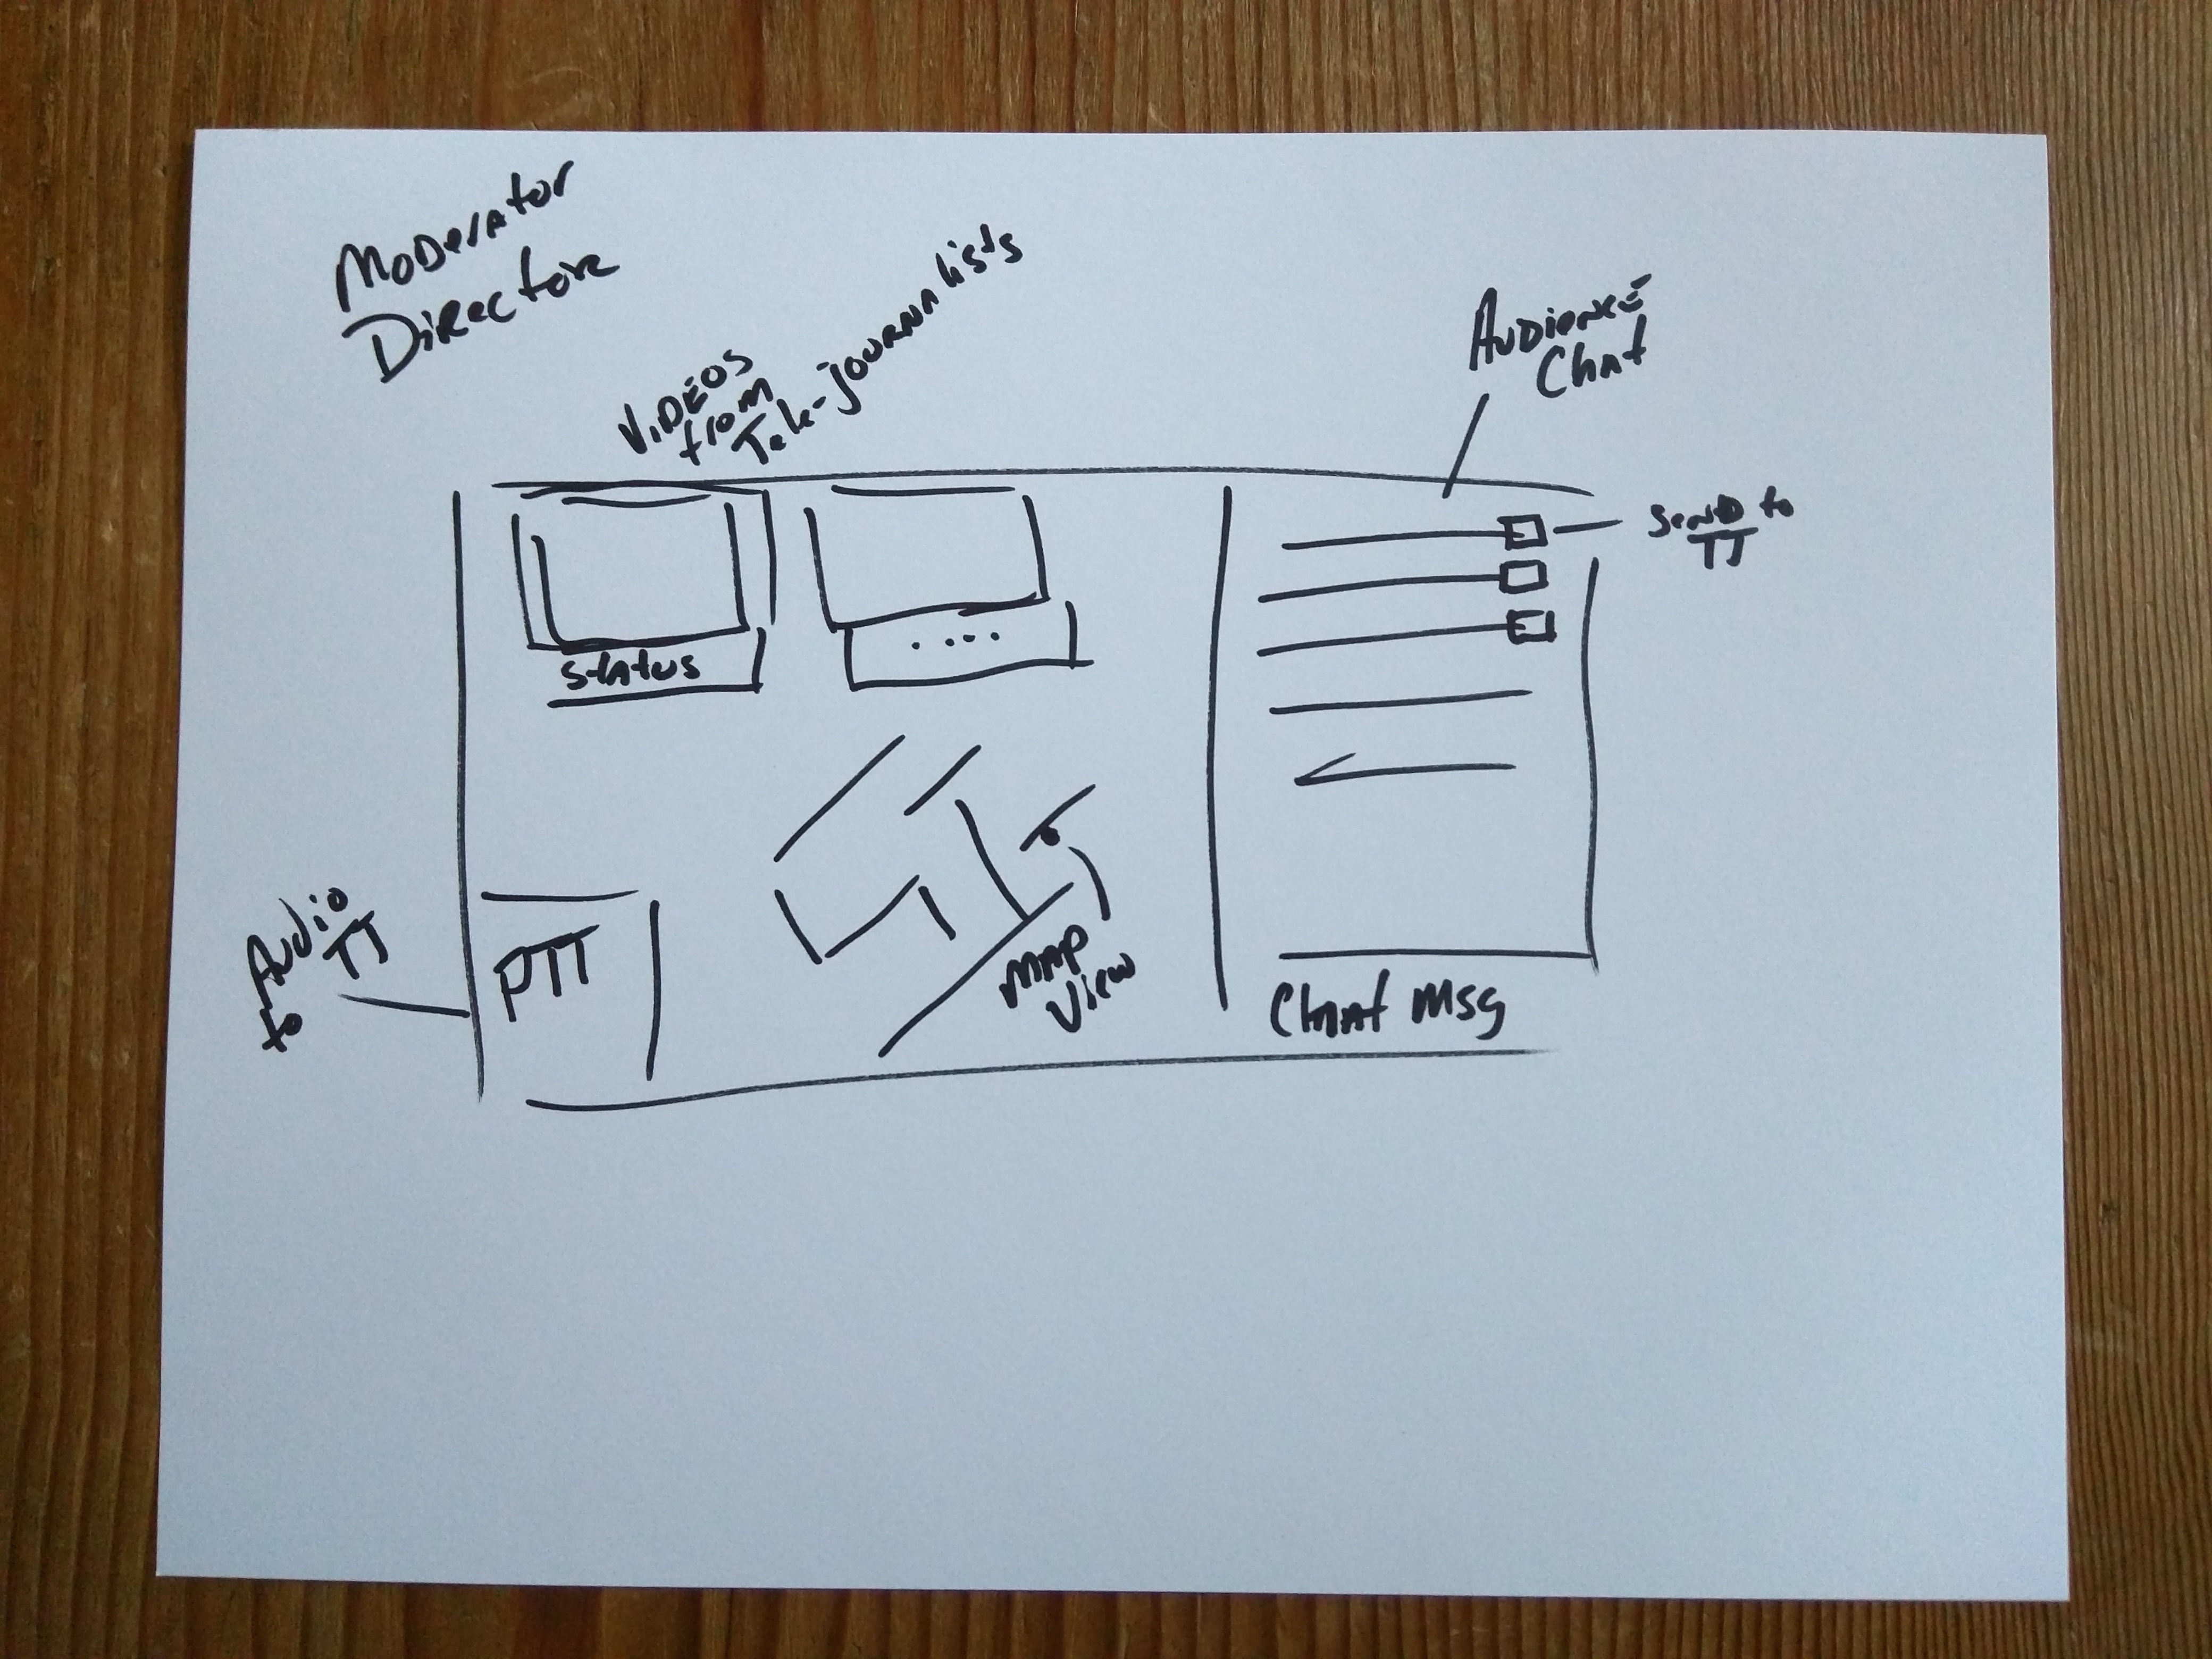 Moderator
Director
Videos
from
Tele-journalists
Audience
Chat
Send to
TJ
status
....
Audio
to TJ
PTT
Map
View
Chat Msg